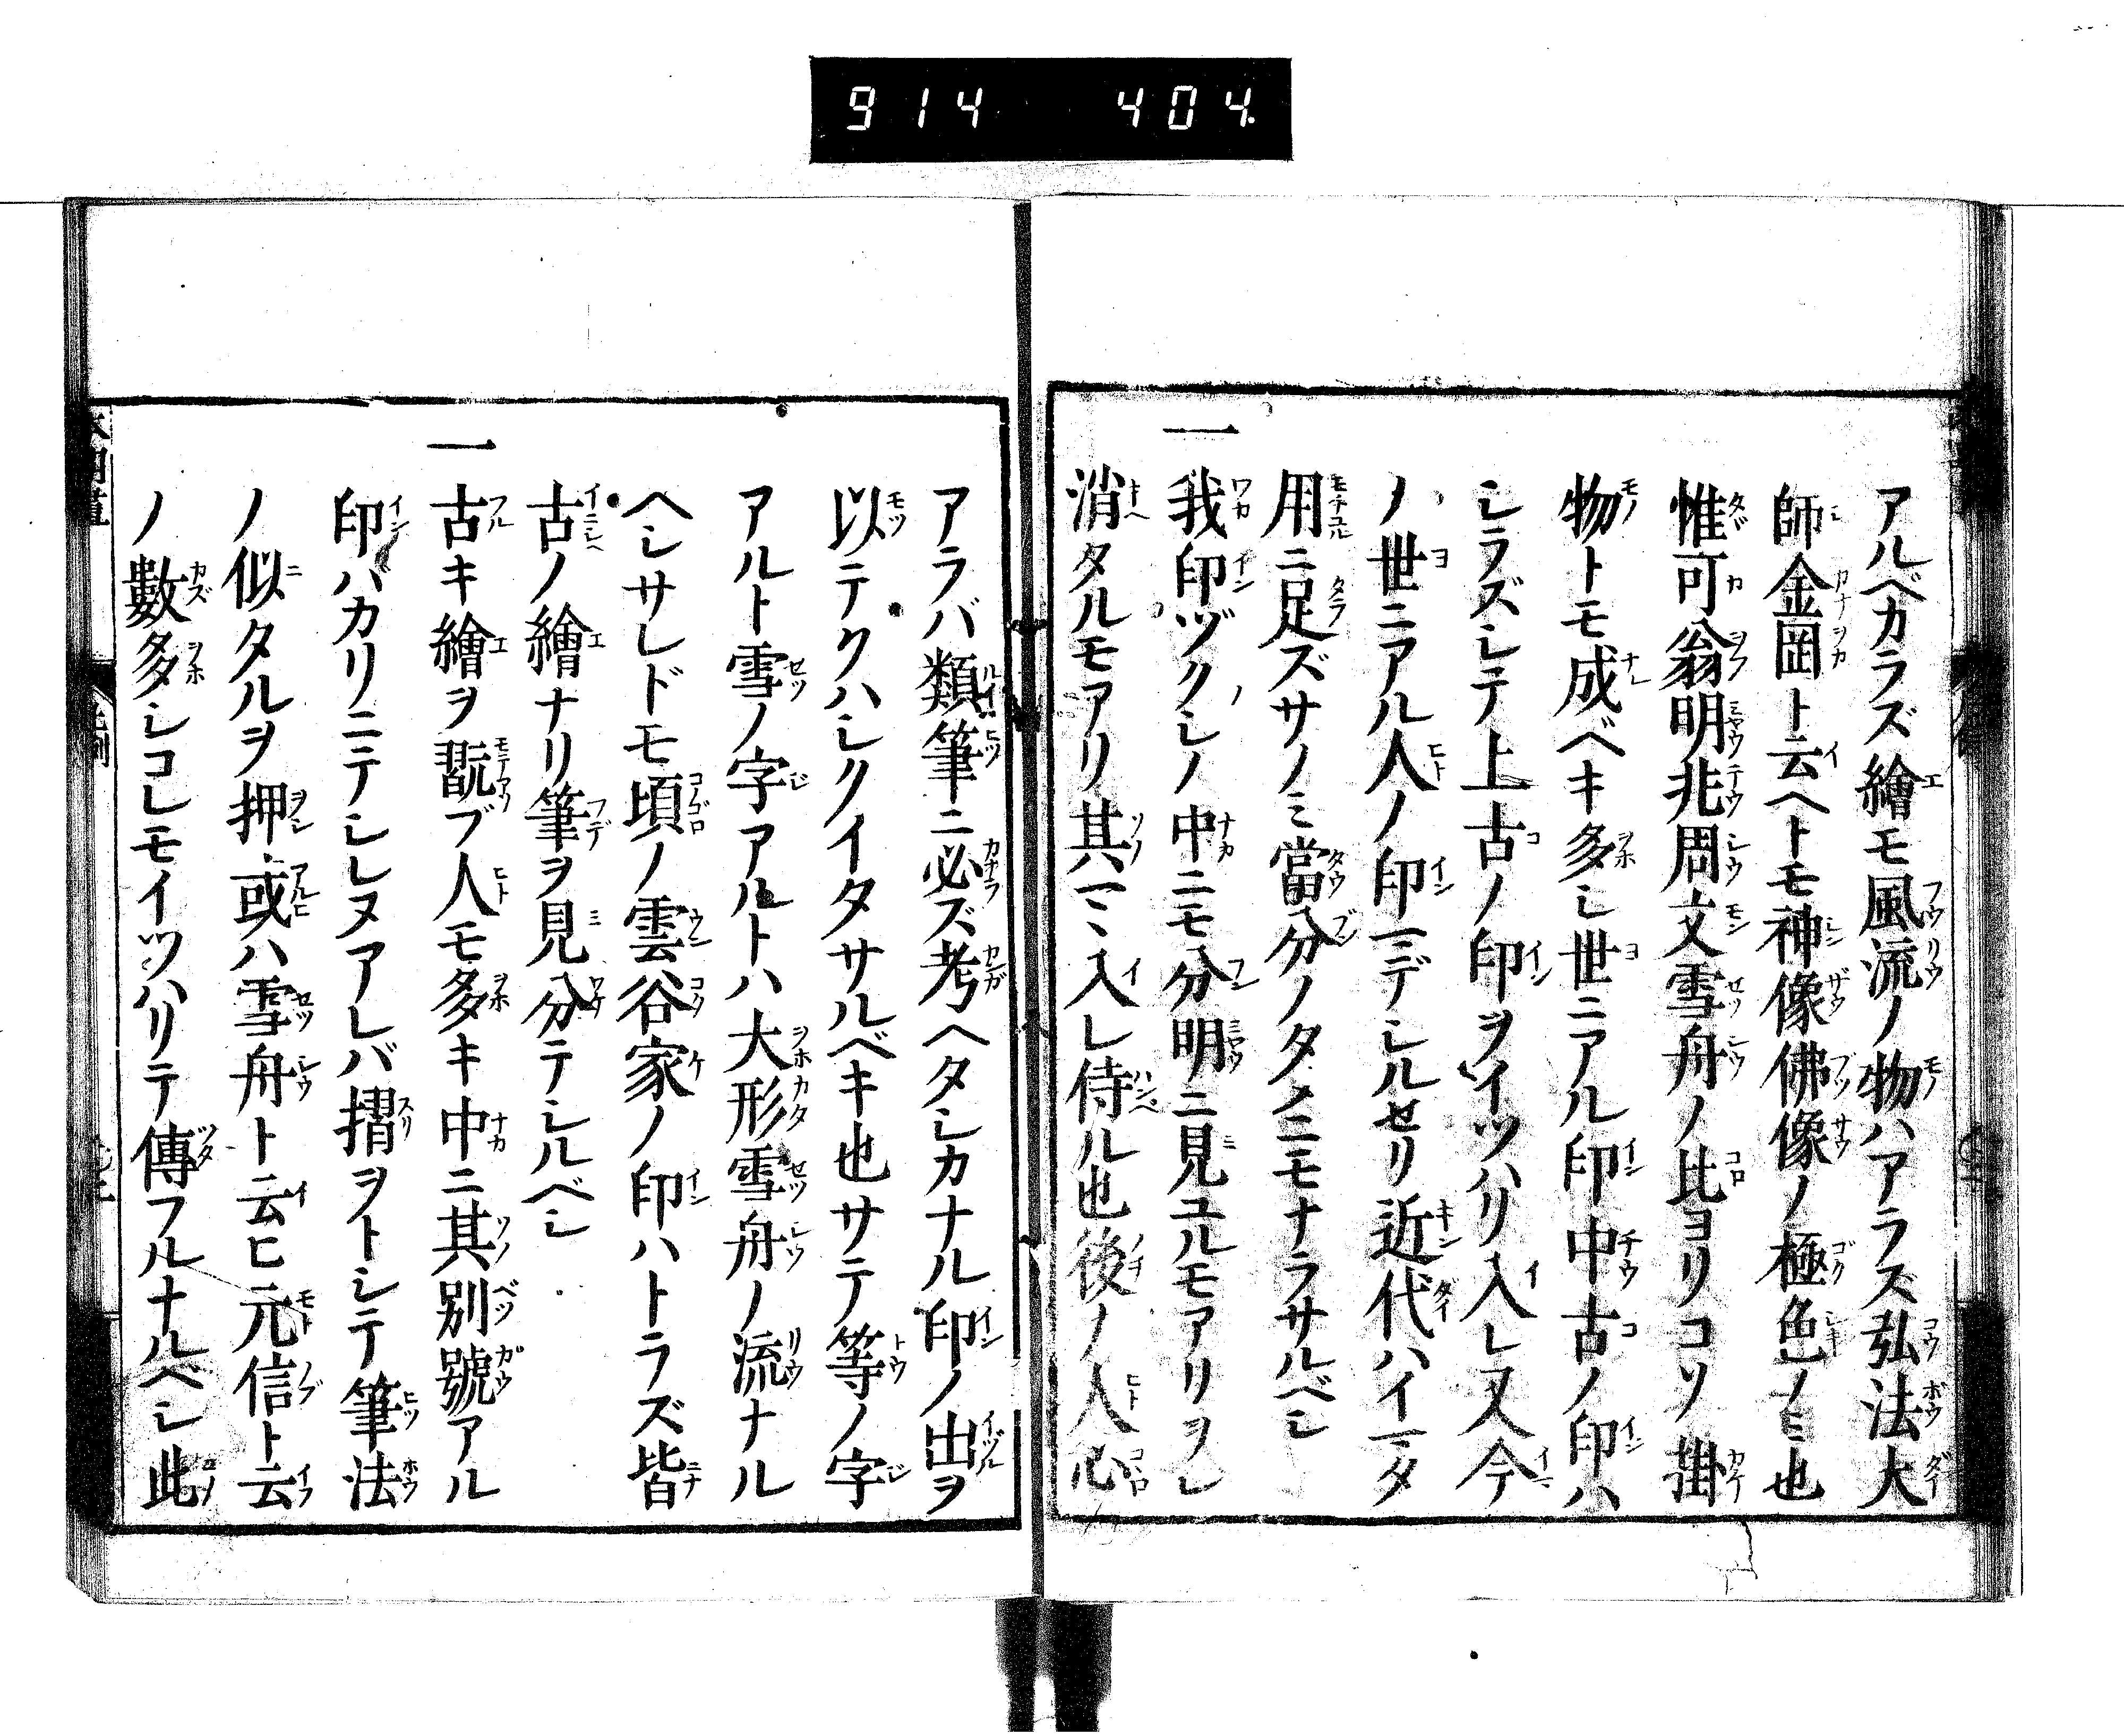 914 404
アルベカラズ繪モ風流ノ物ハアラズ弘法大
師金岡ト云ヘトモ神像佛像ノ極色ノミ也
惟可翁明兆周文雪舟ノ比ヨリコソ掛
物トモ成ベキ多シ世ニアル印中古ノ印ハ
シラズシテ上古ノ印ヲイツハリ入レ又今
ノ世ニアル人ノ印マデシルセリ近代ハイマタ
用ニ足ズサノミ當分ノタメニモナラサルベシ
一我印ヅクシノ中ニモ分明ニ見ユルモアリヲレ
消タルモアリ其マヽ入レ侍ル也後ノ人心
アラバ類筆ニ必ズ考ヘタシカナル印ノ出ヲ
以テクハシクイタサルベキ也サテ等ノ字
アルト雪ノ字アルトハ大形雪舟ノ流ナル
ヘシサレドモ頃ノ雲谷家ノ印ハトラズ皆
古ノ繪ナリ筆ヲ見分テシルベシ
一古キ繪ヲ翫ブ人モ多キ中ニ其別號アル
印バカリニテシレヌアレバ摺ヲトシテ筆法
ノ似タルヲ押或ハ雪舟ト云ヒ元信ト云
ノ數多シコレモイツハリテ傳フルナルベシ此